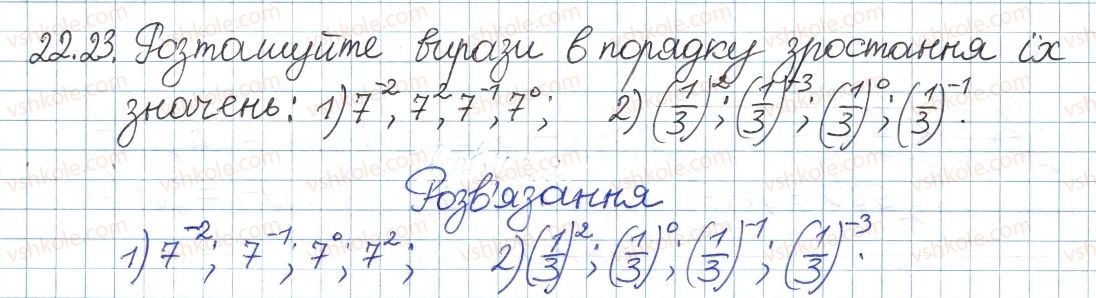 22.23. Розташуйте вирази в порядку зростання їх
значень: 1) 7⁻²; 7²; 7⁻¹; 7⁰; 2) (1/3)²; (1/3)⁻³; (1/3)⁰; (1/3)⁻¹.
Розв'язання
1) 7⁻²; 7⁻¹; 7⁰; 7²; 2) (1/3)²; (1/3)⁰; (1/3)⁻¹; (1/3)⁻³.